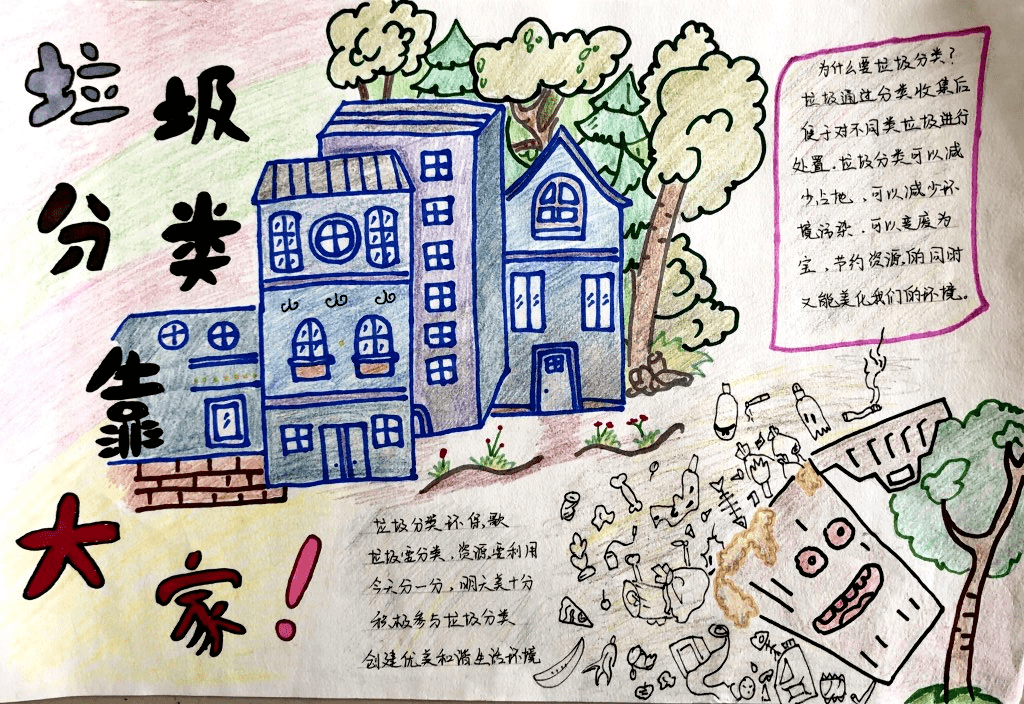 垃圾
分类
靠
大
家！
为什么要垃圾分类？
垃圾通过分类收集后
便于对不同类垃圾进行
处置.垃圾分类可以减
少占地,可以减少环
境污染.可以变废为
宝,节约资源,的同时
又能美化我们的环境。
垃圾分类环保歌
垃圾要分类,资源要利用
今天分一分,明天美十分
积极参与垃圾分类
创建优美和谐生活环境